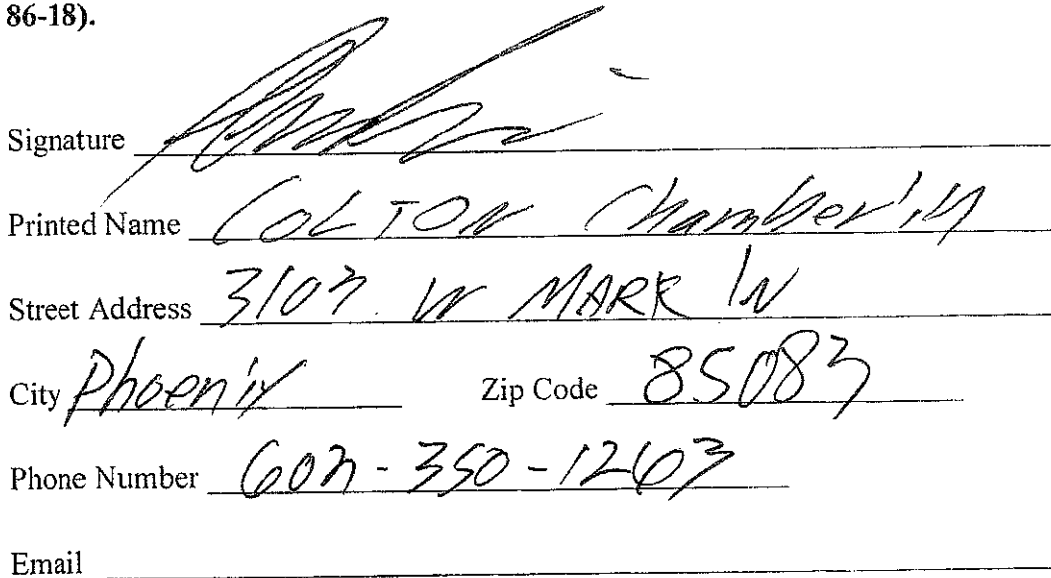 86-18).
Signature
Printed Name COLTON Chamberlin
Street Address 3103 W MARK LN
City Phoenix Zip Code 85083
Phone Number 602-350-1263
Email